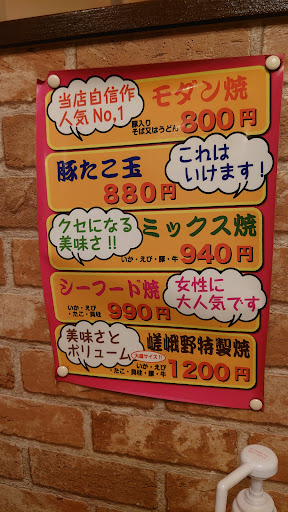 当店自信作
人気No,1
モダン焼
豚入り
そば又はうどん
800円
豚たこ玉
880円
これは
いけます!
クセになる
美味さ!!
ミックス焼
いか・えび・豚・牛
940円
シーフード焼
いか・えび
たこ・貝柱
990円
女性に
大人気です
美味さと
ボリューム
大盛サイズ!!
嵯峨野特製焼
いか・えび
たこ・貝柱・豚・牛
1200円